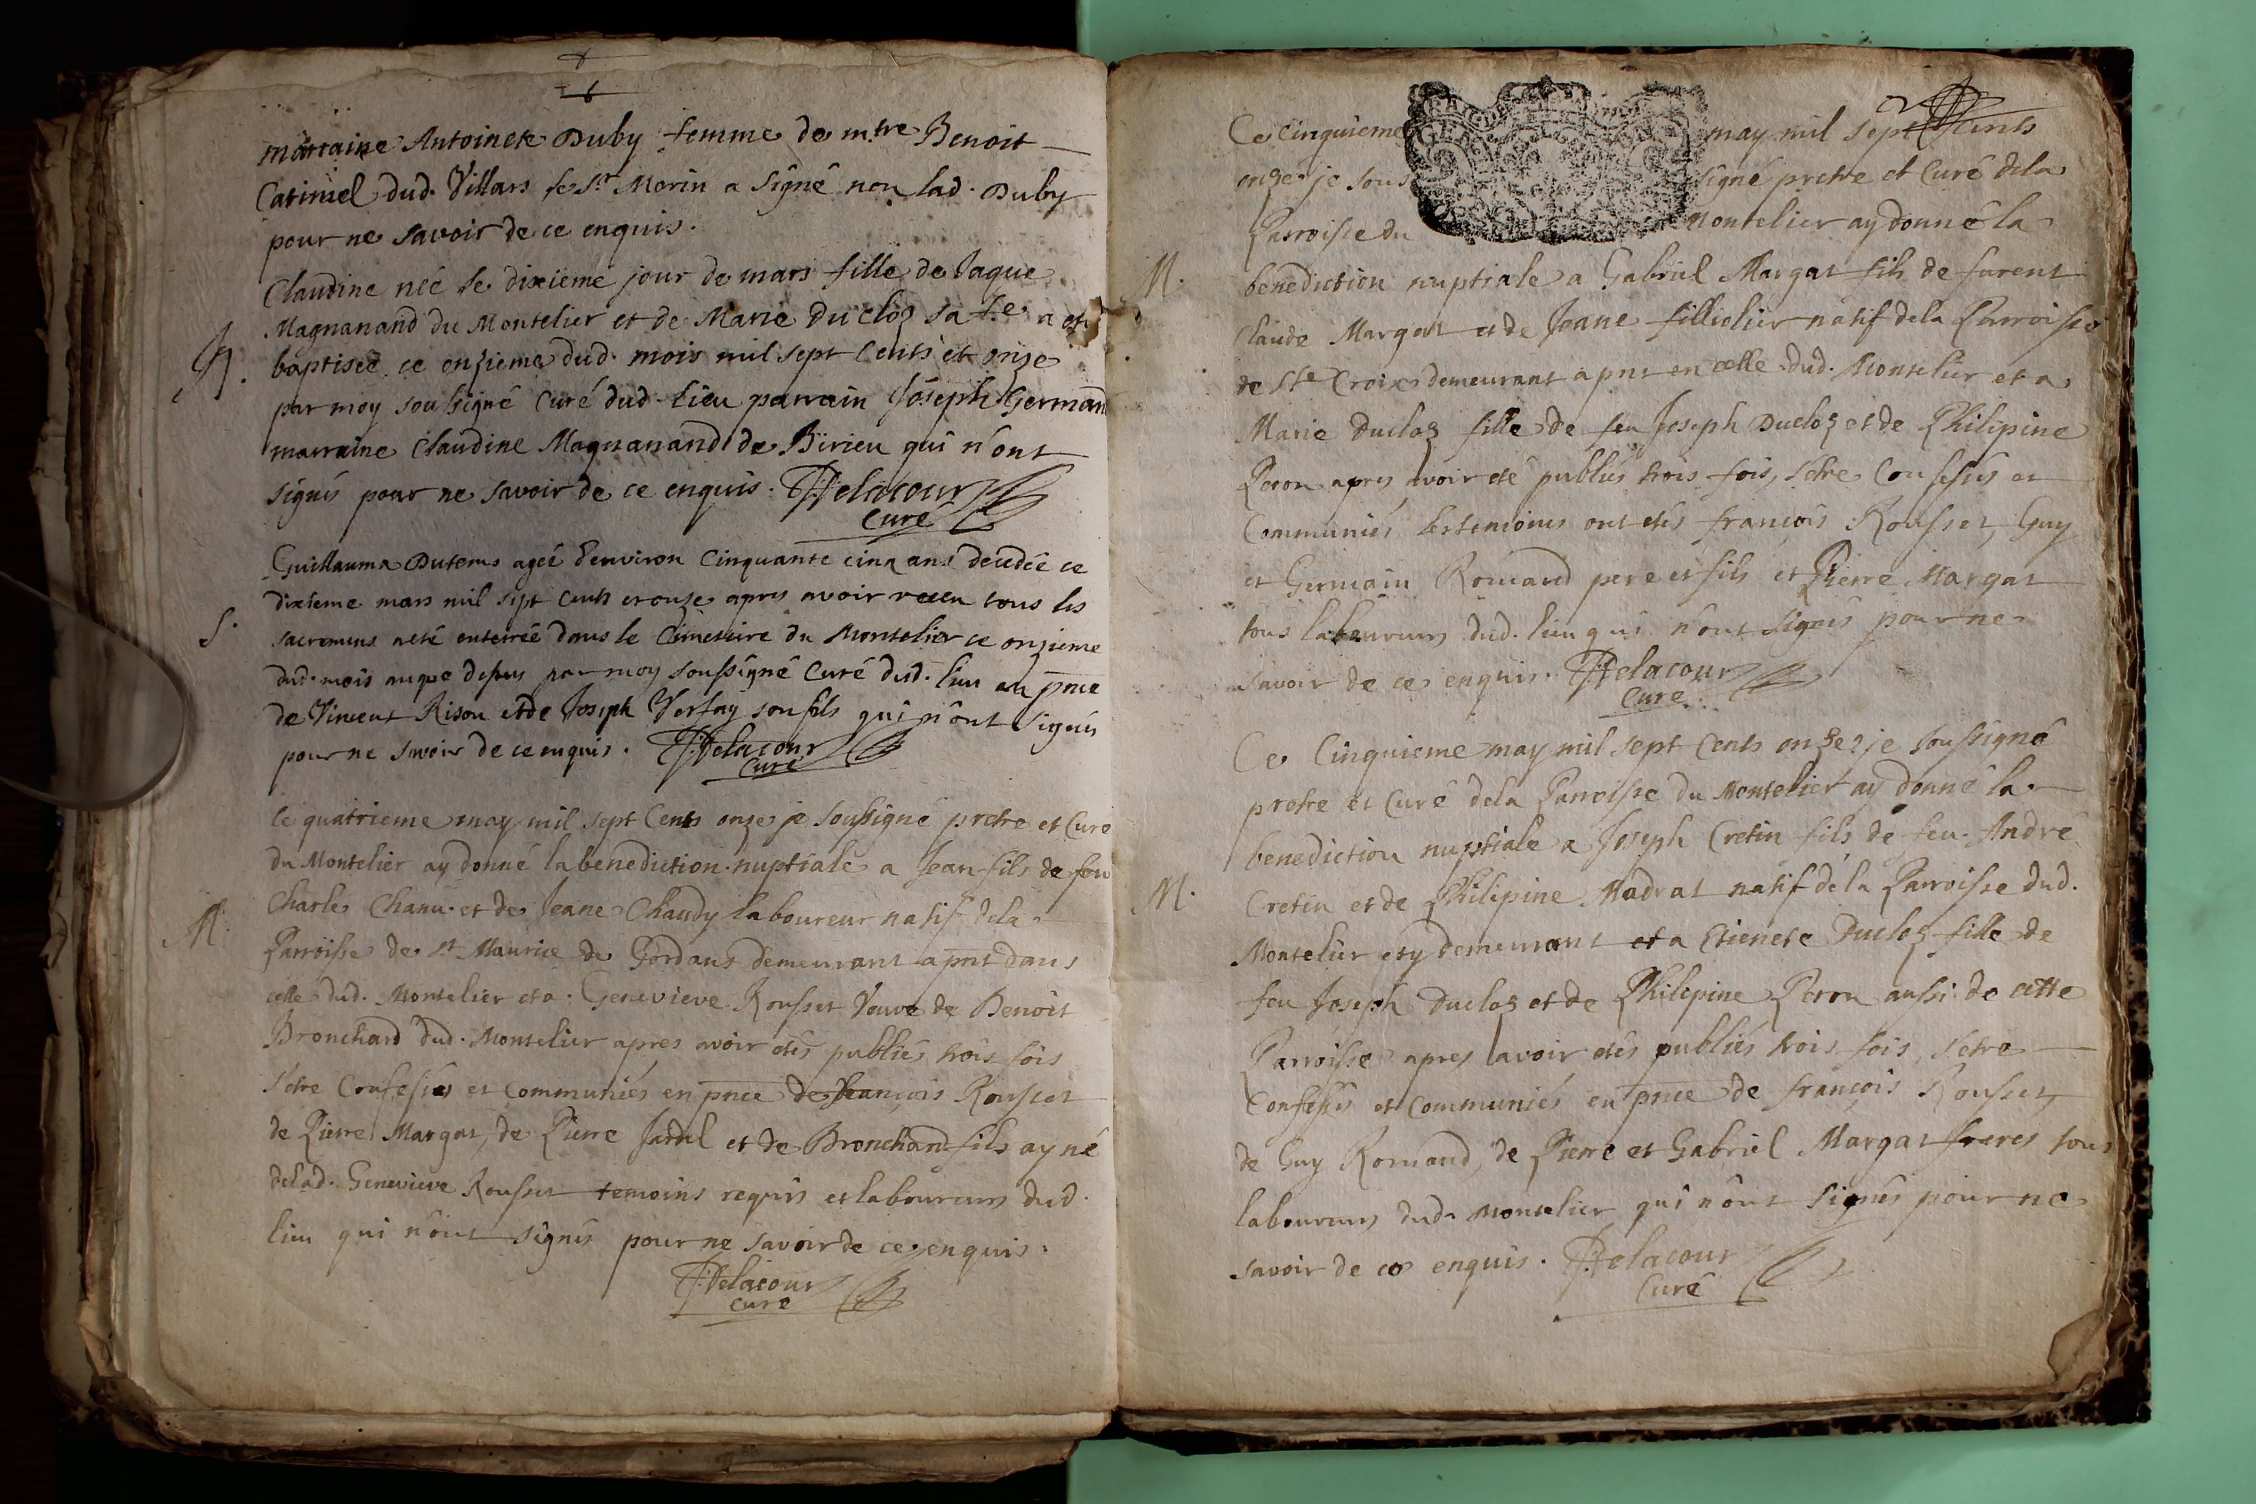 marraine Antoinete Duby femme de m.tre Benoit
Catiniel dud. Villars le Sr Morin a signé non lad. Duby
pour ne savoir de ce enquis.
Claudine née le dixieme jour de mars fille de Jaque
Magnanand du Montelier et de Marie Ducloz sa fe. a eté
B.
baptisée ce onzieme dud. mois mil sept cents et onze
par moy soussigné curé dud. lieu parrain Joseph Germand
marraine Claudine Magnanand de Birieu qui n'ont
signés pour ne savoir de ce enquis. Delacour
curé
Guillauma Dutems ageé d'environ cinquante cinq ans decedée ce
dixieme mars mil sept cents et onze apres avoir receu tous les
S.
sacremens a eté enterrée dans le Cimetiere du Montelier ce onzieme
dud. mois que depus par moy soussigné curé dud. lieu en pnce
de Vincent Rison et de Joseph Verfay son fils qui n'ont signés
pour ne savoir de ce enquis. Delacour
curé
le quatrieme may mil sept cents onze je soussigné pretre et curé
du Montelier ay donné la benediction nuptiale a Jean fils de feu
Charle Chanu et de Jeane Chaudy laboureur natif dela
M.
Parroisse de st Maurice de Gordans demeurant a pnt dans
celle dud. Montelier et a Genevieve Rousset veuve de Benoit
Bronchard dud. Montelier apres avoir etés publiés trois fois
s'etre confessés et communiés en pnce de françois Rousset
de Pierre Margat, de Pierre Jardel et de Bronchard fils ayné
delad. Genevieve Rousset temoins requis et laboureurs dud.
lieu qui n'ont signés pour ne savoir de ce enquis.
Delacour
curé
Ce cinquieme may mil sept cents
onze je soussigné pretre et curé dela
Parroisse du Montelier ay donné la
M.
benediction nuptiale a Gabriel Margat fils de furent
Claude Margat et de Jeane filliolier natif dela Parroisse
de Ste Croix demeurant a pnt en celle dud. Montelier et a
Marie Ducloz fille de feu Joseph Ducloz et de Philipine
Peron apres avoir eté publiés trois fois, s'etre confessés et
communiés les temoins ont etés françois Rousset, Guy
et Germain Romand pere et fils et Pierre Margat
tous laboureurs dud. lieu qui n'ont signés pour ne
savoir de ce enquis. Delacour
curé
Ce cinquieme may mil sept cents onze je soussigné
pretre et curé dela Parroisse du Montelier ay donné la
benediction nuptiale a Joseph Cretin fils de feu André
M.
Cretin et de Philipine Madrat natif dela Parroisse dud.
Montelier et y demeurant et a Etienete Ducloz fille de
feu Joseph Ducloz et de Philipine Peron aussi de cette
Parroisse apres avoir etés publiés trois fois, s'etre
confessés et communiés en pnce de françois Rousset,
de Guy Romand, de Pierre et Gabriel Margat freres tous
laboureurs dud. Montelier qui n'ont signés pour ne
savoir de ce enquis. Delacour
curé